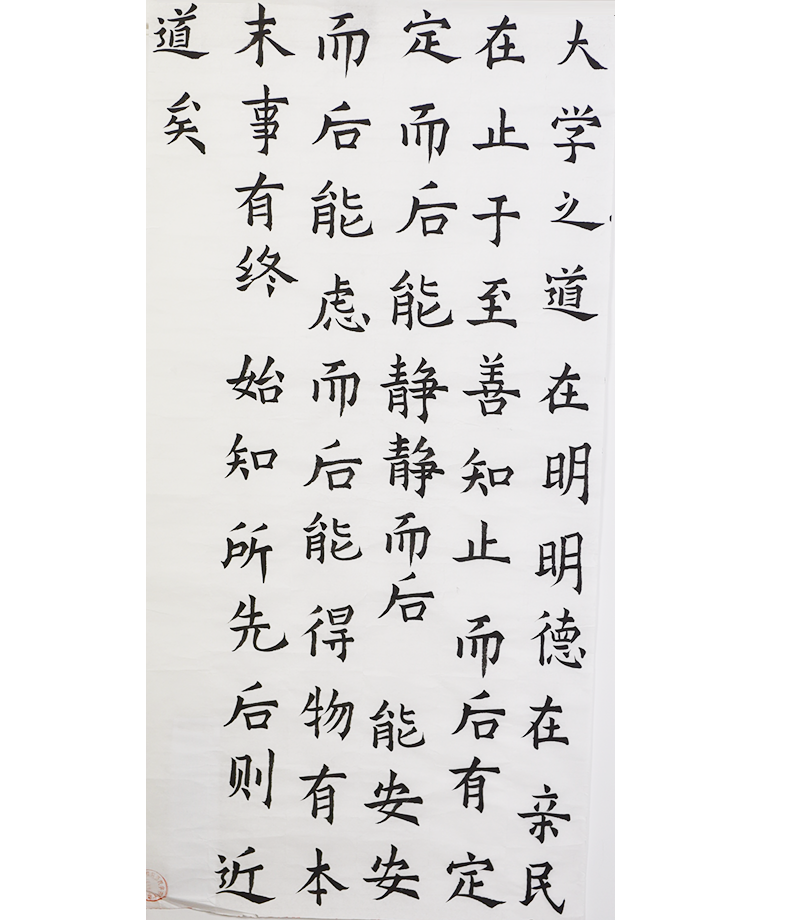 大学之道在明明德在亲民
在止于至善知止而后有定
定而后能静静而后能安安
而后能虑而后能得物有本
末事有终始知所先后则近
道矣